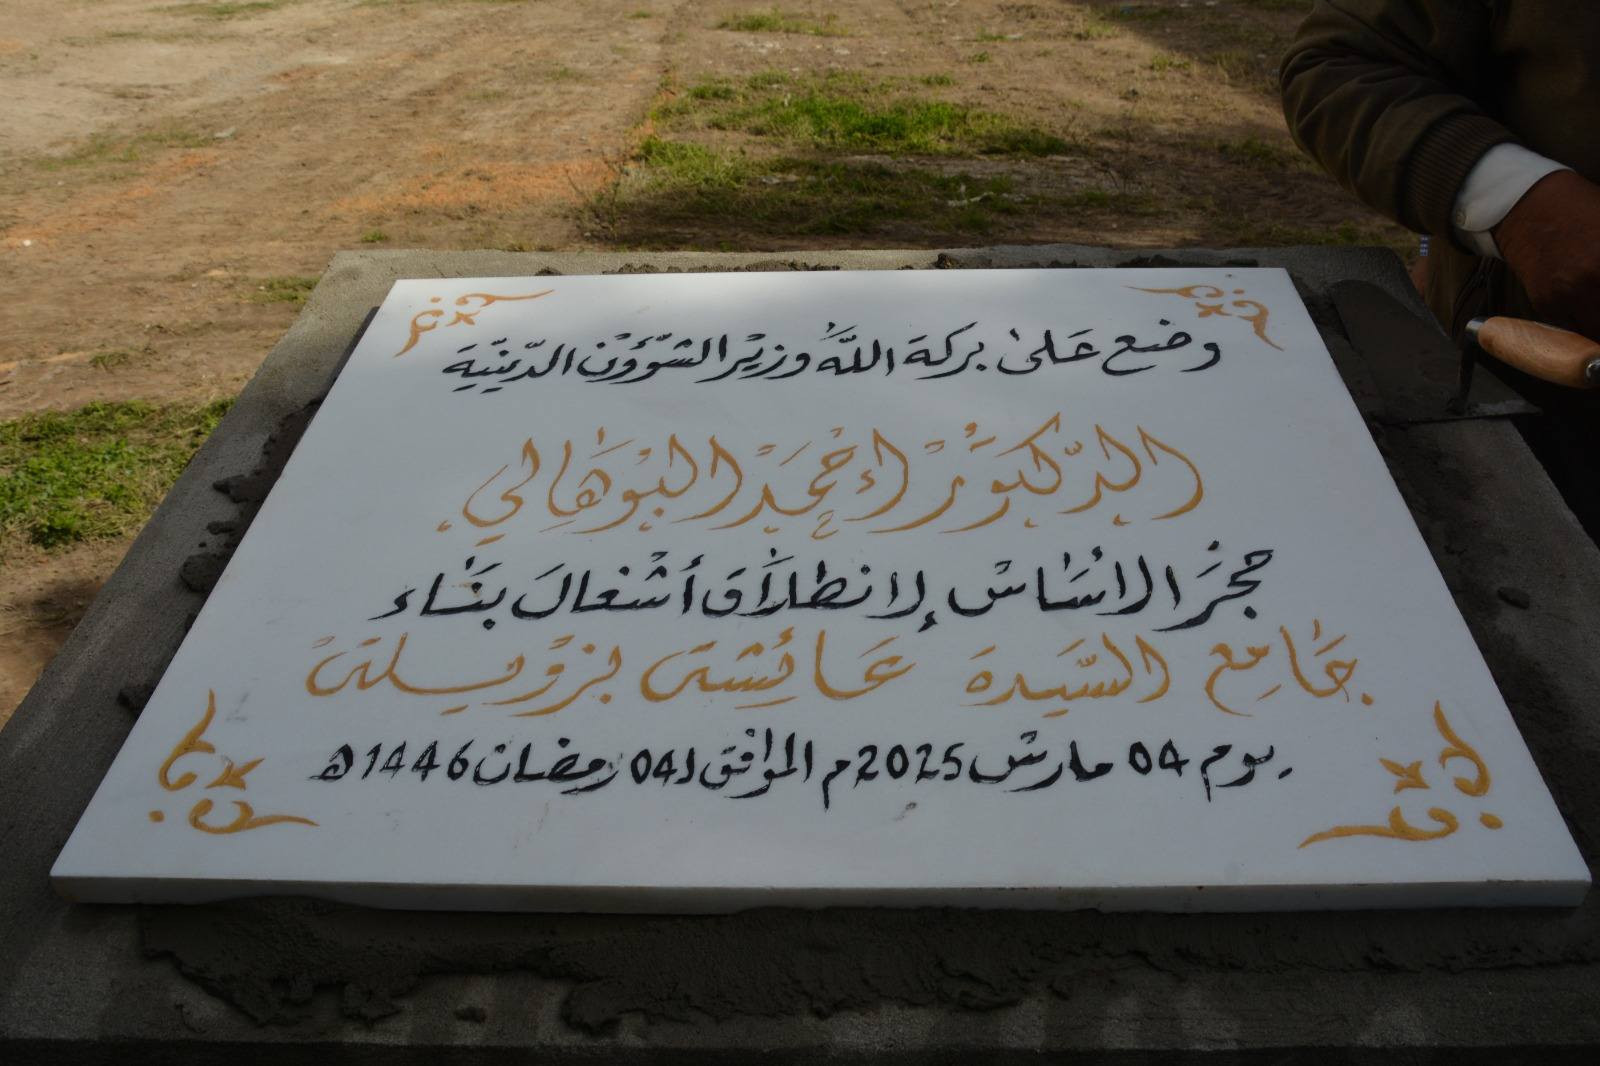 وضع عَلىٰ بركة اللّه وزيْر الشّؤُوْن الدّينيّة
الدّكتوُرْ أحْمَدْ البُوْهَالِي
حجَر الأسَاسْ لإنطلاَق أشْغالَ بنَاء
جَامِع السَّيدة عَائشة بزوْيلة
يوم 04 مارسْ 2025م الموافق لـ04 رمضان 1446هـ